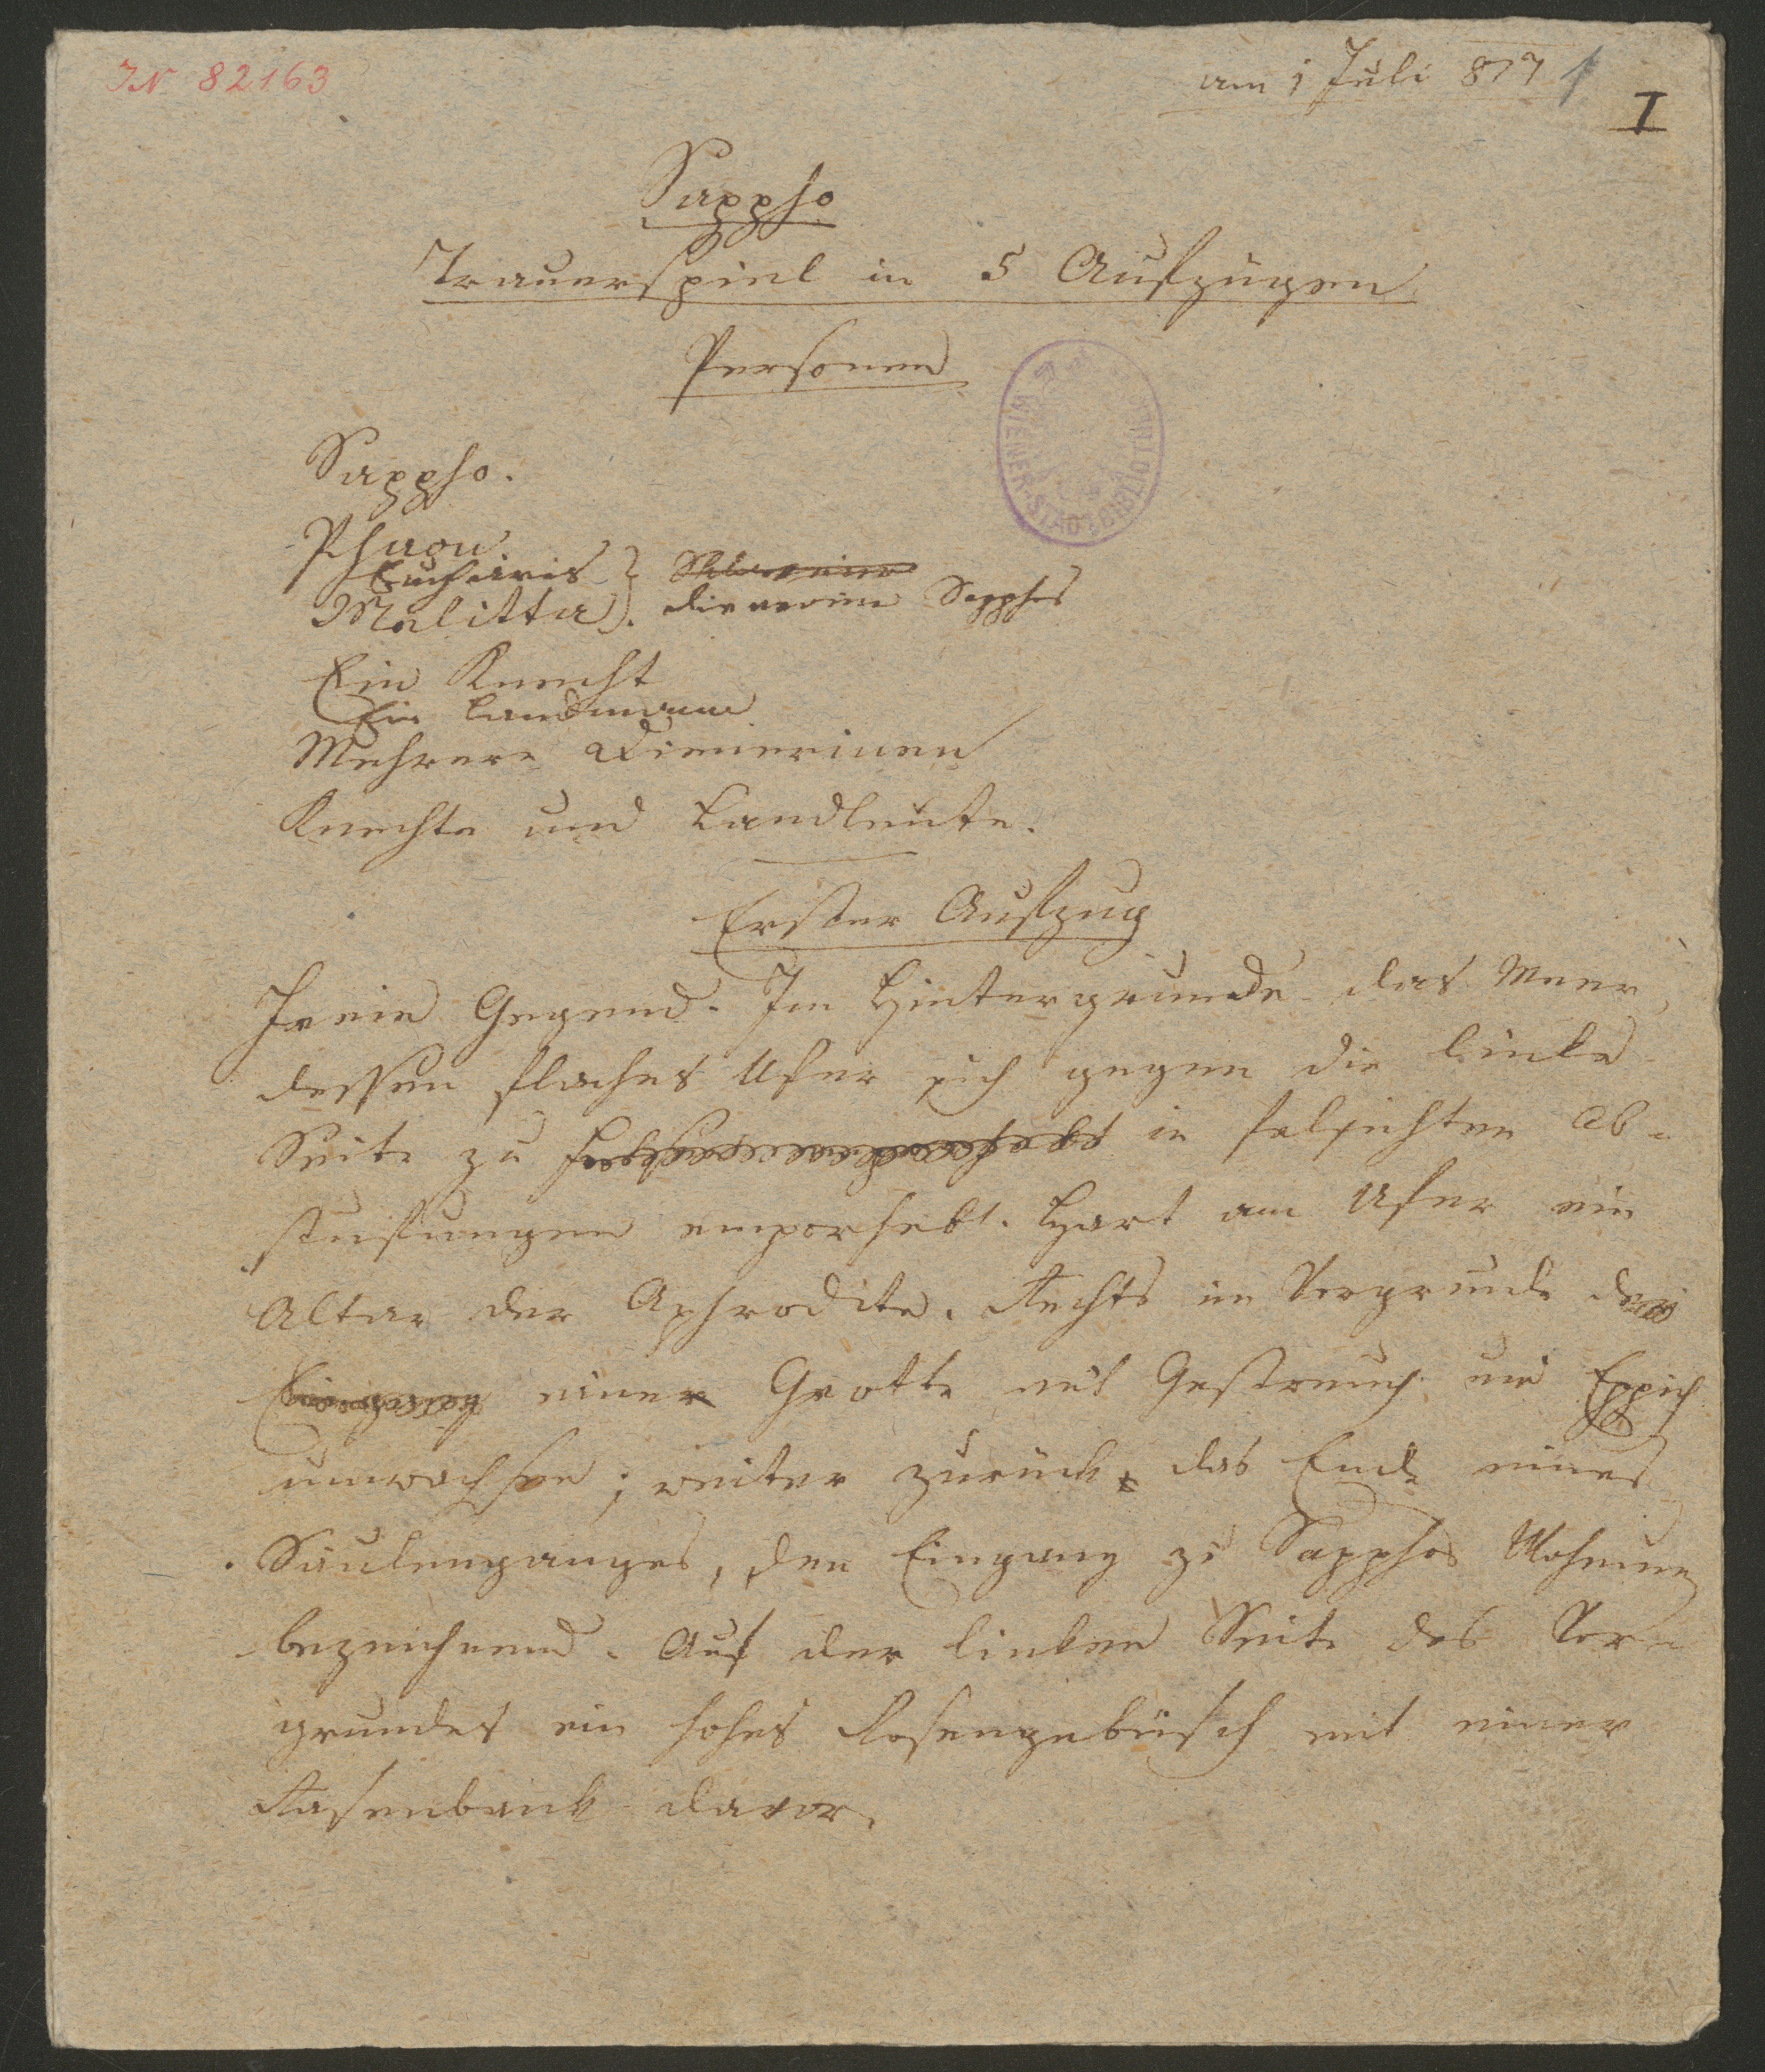 IN 82163
am 1 Juli 817
1
I
Sappho
Trauerspiel in 5 Aufzügen
Personen
WIENER STADTBIBLIOTHEK
Sappho.
Phaon.
Eucharis } Sklavinen
Melitta }. Dienerinen Sapphos
Ein Knecht
Ein Landmann
Mehrere Dienerinen
Knechte und Landleute.
Erster Aufzug
Freie Gegend. Im Hintergrunde das Meer,
dessen flaches Ufer sich gegen die linke
Seite zu in felsichten Ab-
stufungen emporhebt. Hart am Ufer ein
Altar der Aphrodite. Rechts im Vorgrunde
Eingang einer Grotte mit Gesträuch und Eppich
umwachsen; weiter zurück das Ende eines
Säulenganges, den Eingang zu Sapphos Wohnung
bezeichnend. Auf der linken Seite des Vor-
grundes ein hohes Rosengebüsch mit einer
Rasenbank davor.